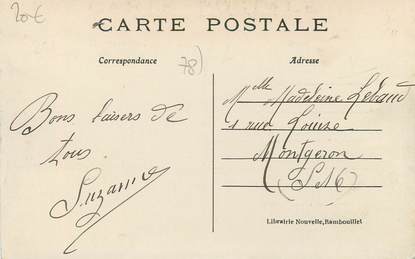 20€
CARTE POSTALE
Correspondance
78)
Adresse
Bons baisers de
tous
Suzanne
Mlle Madeleine Lebaud
1 rue Louise
Montgeron
(S & O)
Librairie Nouvelle, Rambouillet